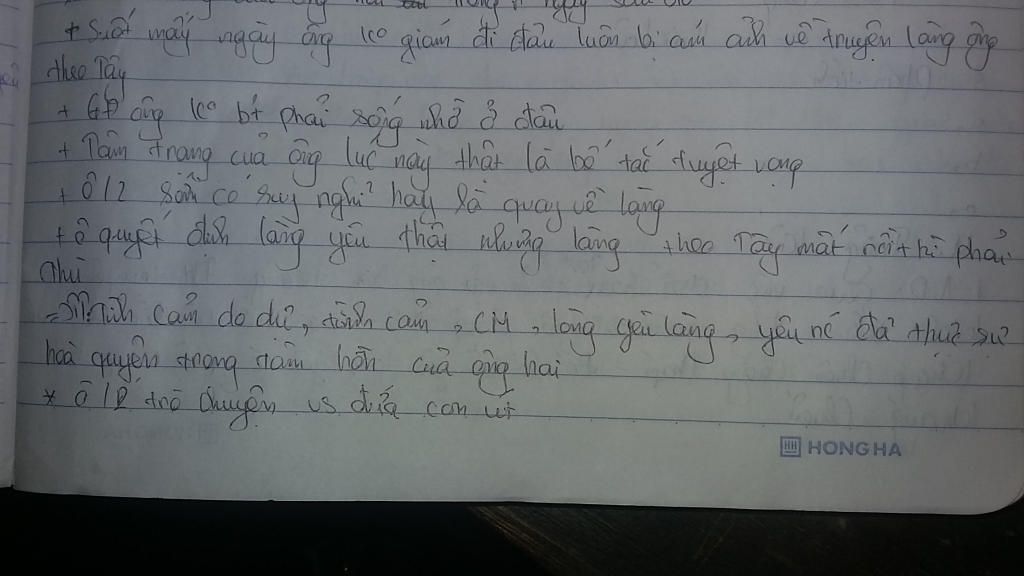 + Suốt mấy ngày ông ko giám đi đâu luôn bị ám ảnh về truyện làng ông
theo Tây
+ GĐ ông ko bt phải sống nhờ ở đâu
+ Tâm trạng của ông lúc này thật là bế tắc tuyệt vọng
+ Ô 12 sớm có suy nghĩ hay là quay về làng
+ ô quyết định làng yêu thật nhưng làng theo Tây mất rồi thì phải
thù
=> Tình cảm do dự, tình cảm, CM, lòng yêu làng, yêu nc đã thực sự
hoà quyện trong tâm hồn của ông hai
* Ô 12 trò chuyện vs đứa con út
HONG HA